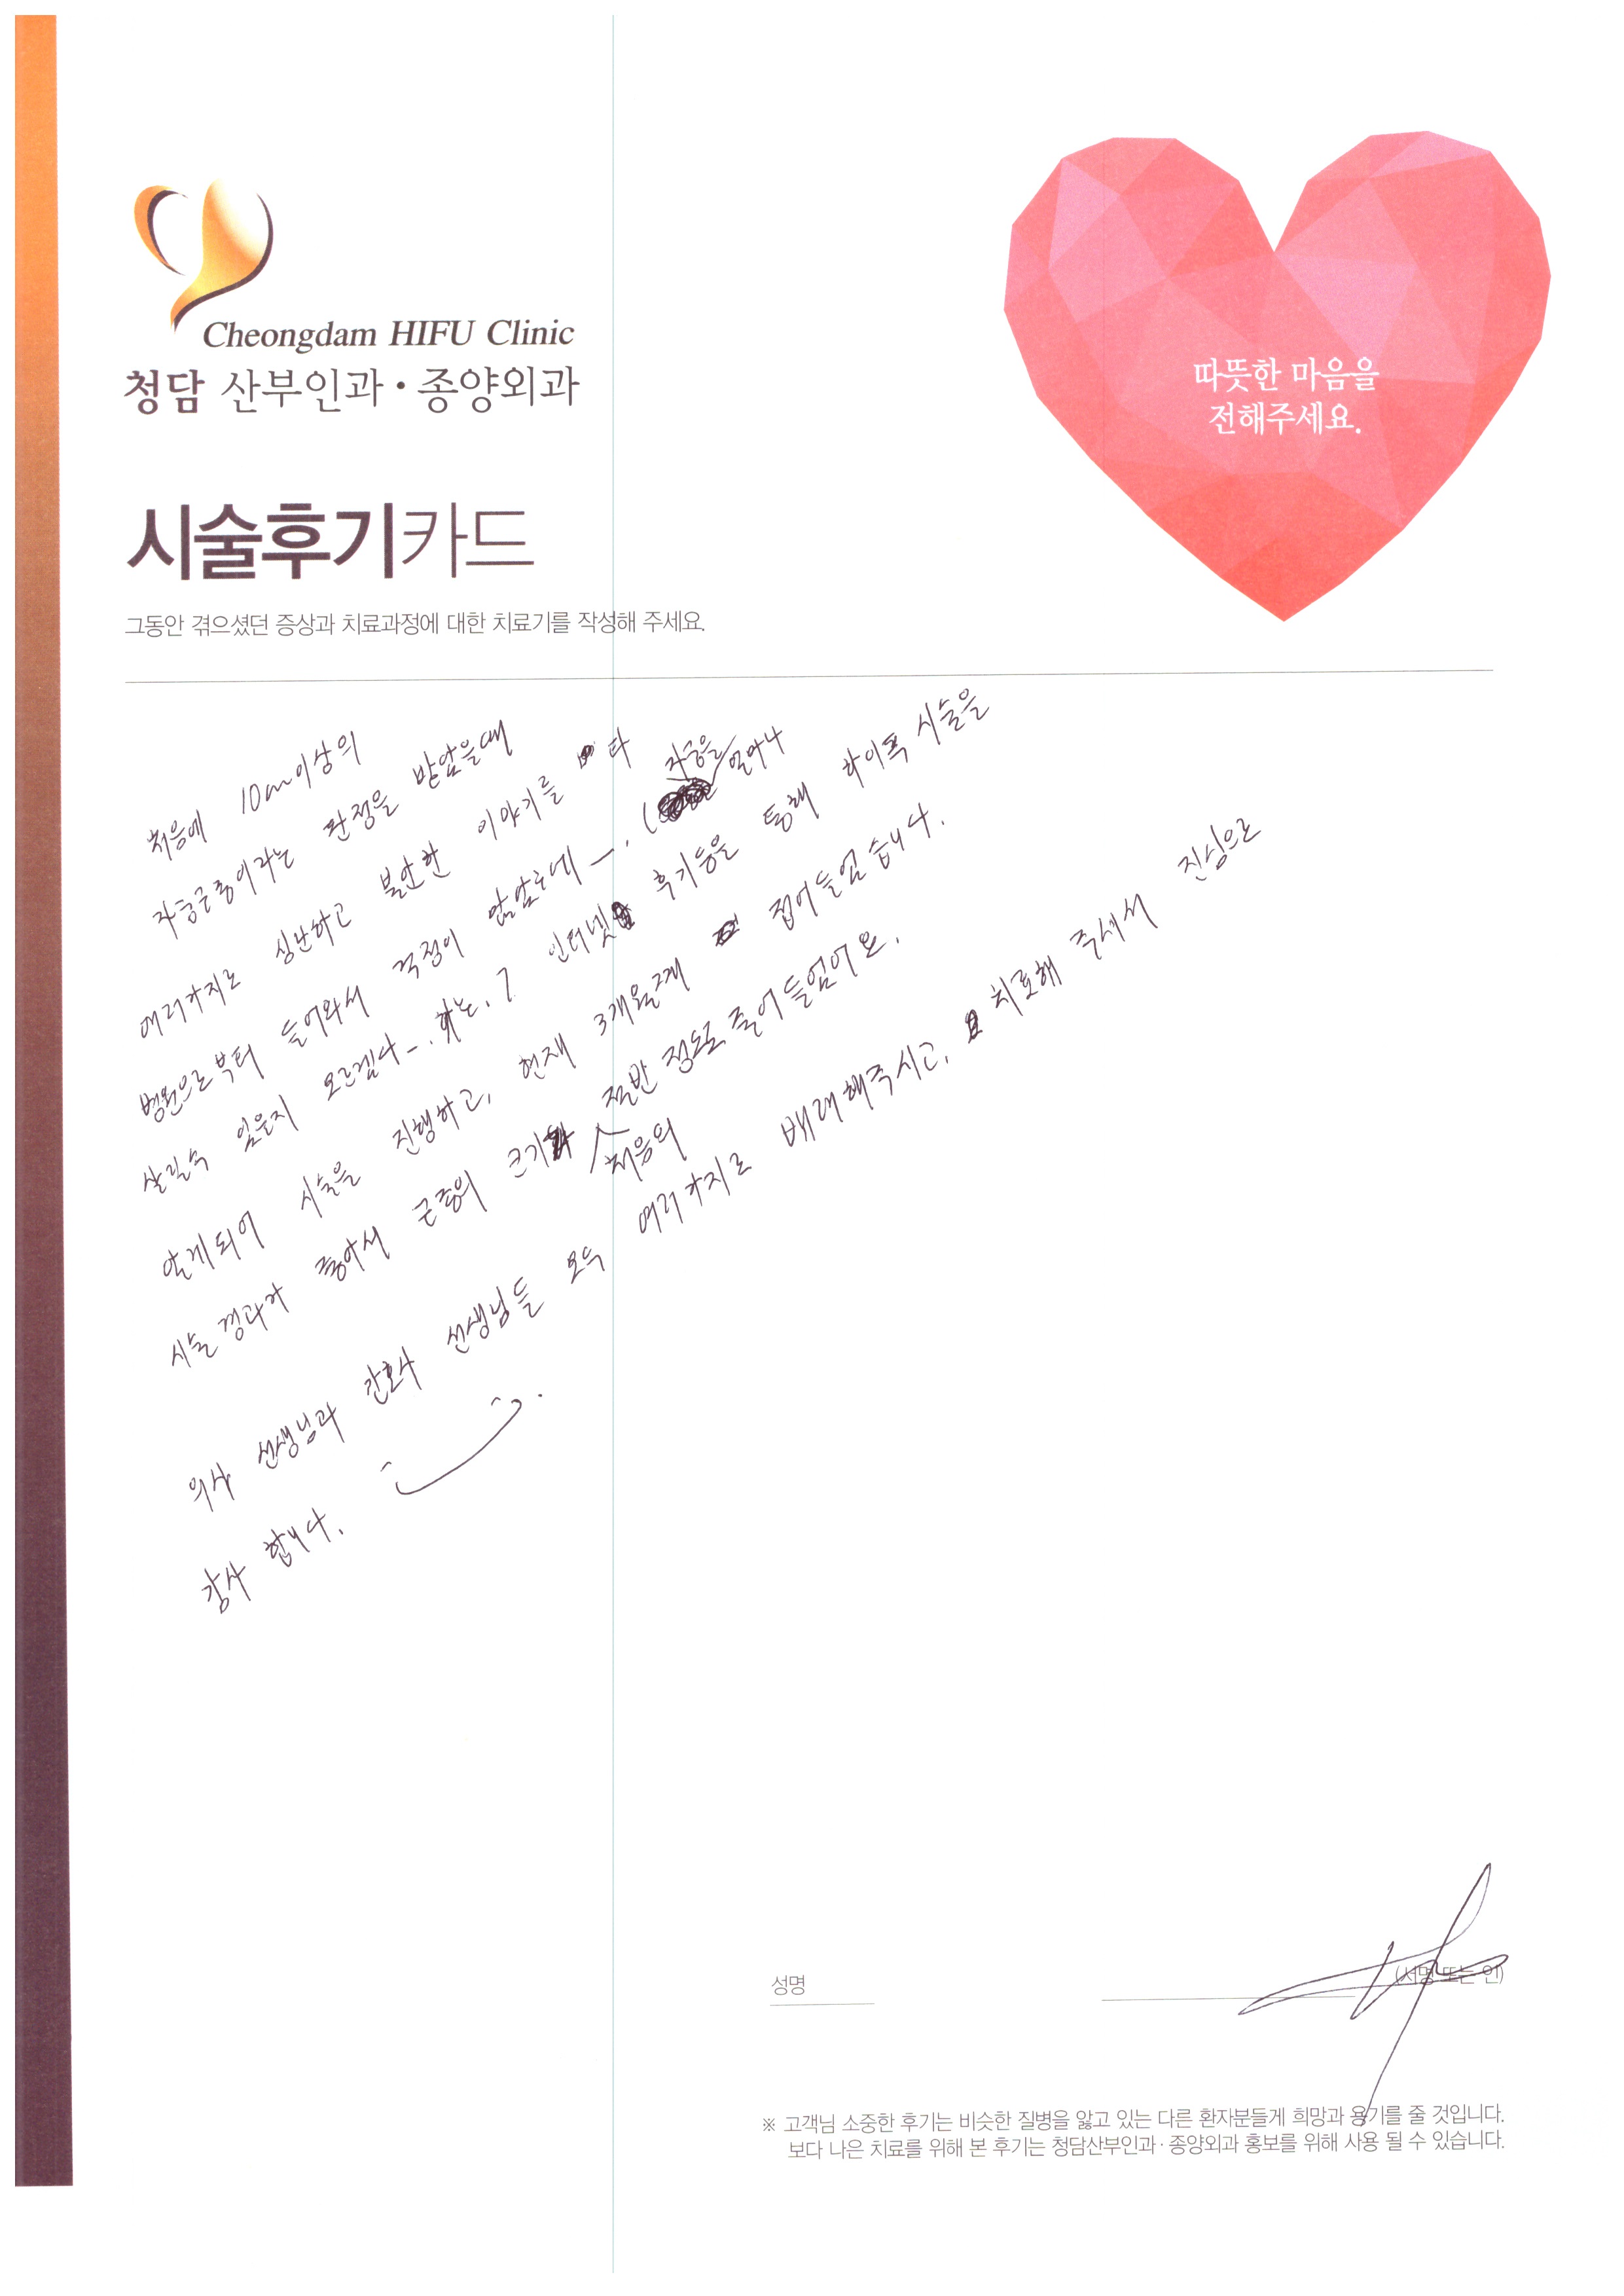 Cheongdam HIFU Clinic
청담 산부인과·종양외과
따뜻한 마음을
전해주세요.
시술후기카드
그동안 겪으셨던 증상과 치료과정에 대한 치료기를 작성해 주세요.
처음에 10cm이상의
자궁근종이라는 판정을 받았을때
여러가지로 심난하고 불안한 이야기를 타
병원으로부터 들어와서 걱정이 많았는데—. (자궁을 얼마나
살릴수 있을지 모르겠다—. 하는.) 인터넷 후기등을 통해 하이푸 시술을
알게되어 시술을 진행하고, 현재 3개월째 접어들었습니다.
시술 경과가 좋아서 근종의 크기가 처음의 절반 정도로 줄어들었어요.
의사 선생님과 간호사 선생님들 모두 여러가지로 배려해주시고, 치료해 주셔서 진심으로
감사 합니다.
성명
(서명 또는 인)
※ 고객님 소중한 후기는 비슷한 질병을 앓고 있는 다른 환자분들게 희망과 용기를 줄 것입니다.
보다 나은 치료를 위해 본 후기는 청담산부인과·종양외과 홍보를 위해 사용 될 수 있습니다.